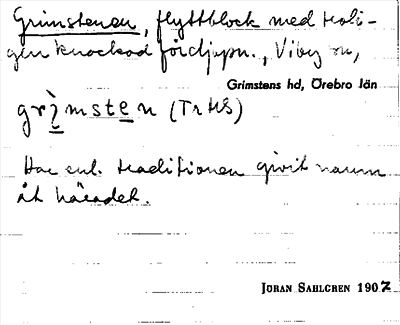 Grimstenen, flyttblock med troli-
gen knackad fördjupn., Viby sn,
Grimstens hd, Örebro län
grìmsten (TrHS)
Har enl. traditionen givit namn
åt häradet.
JÖRAN SAHLGREN 1902